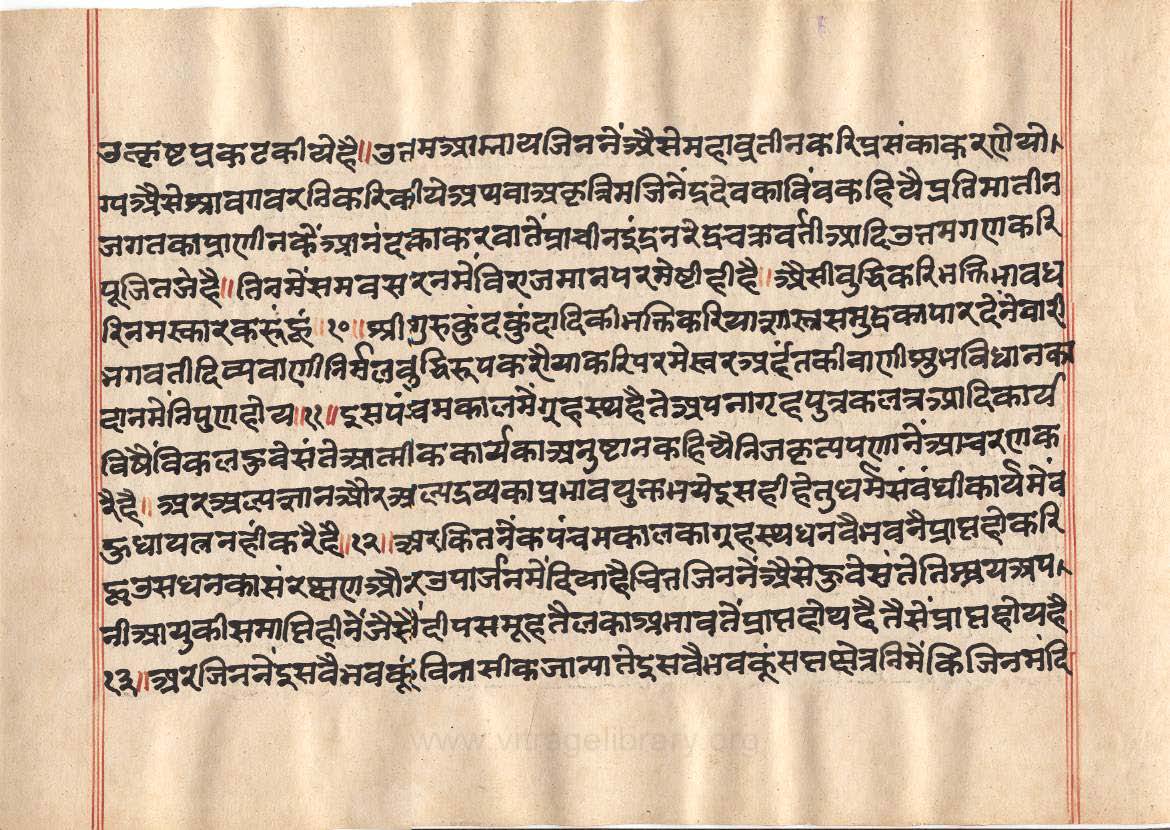 उत्कृष्ट प्रकट कीये है॥ उत्तम आम्नाय जिननें अैसे महाव्रतीन करि प्रसंका करणे यो।
ग्य अैसे श्रावगवरनि करि कीये अथवा अकृत्रिम जिनेंद्रदेव का बिंब कहियै प्रतिमा तीन
जगत का प्राणीन कें आनंद का करवातें प्राचीन इंद्र नरेंद्र चक्रवर्ती आदि उत्तम गण करि
पूजित जे है॥ तिनमें समवसरनमें विराजमान परमेष्टी ही है॥ अैसी बुद्धि करि भक्तिभाव ध
रि नमस्कार करूं हूं॥१०॥ श्री गुरु कुंदकुंदादि की भक्ति करि या शास्त्रसमुद्र का पार देंनेवारी
भगवती दिव्यवाणी निर्मल बुद्धिरूप करौ या करि परमेस्वर अर्हंत की वाणी शुभ विधान का
दान में निपुण होय॥११॥ इस पंचमकालमें गृहस्थ है ते अपना गृह पुत्र कलत्र आदि कार्य
विषैं विकल हुवे संते आत्मीक कार्य का अनुष्टान कहियै निज कृत्यपणानें आचरण क
रै है॥ अर अल्पज्ञान और अल्पद्रव्य का प्रभाव युक्त भये इस ही हेतु धर्म संबंधी कार्य में बं
हुधा यत्न नहीं करै है॥१२॥ अर कितनैंक पंचमकाल का गृहस्थ धन वैभव नै प्राप्त होकरि
हू उस धन का संरक्षण और उपार्जन में दिया है चित्त जिननें अैसे हुवे संते तिश्चय अप।
नी आयु की समाप्ति हीनें जैसैं दीपसमूह तैल का अभावतें प्राप्त होय है तैसें प्राप्त होय है
१३॥ अर जिननें इस वैभवकूं विनासीक जान्या ते इस वैभवकूं सप्त क्षेत्रनि में कि जिनमंदि
www.vitragelibrary.org